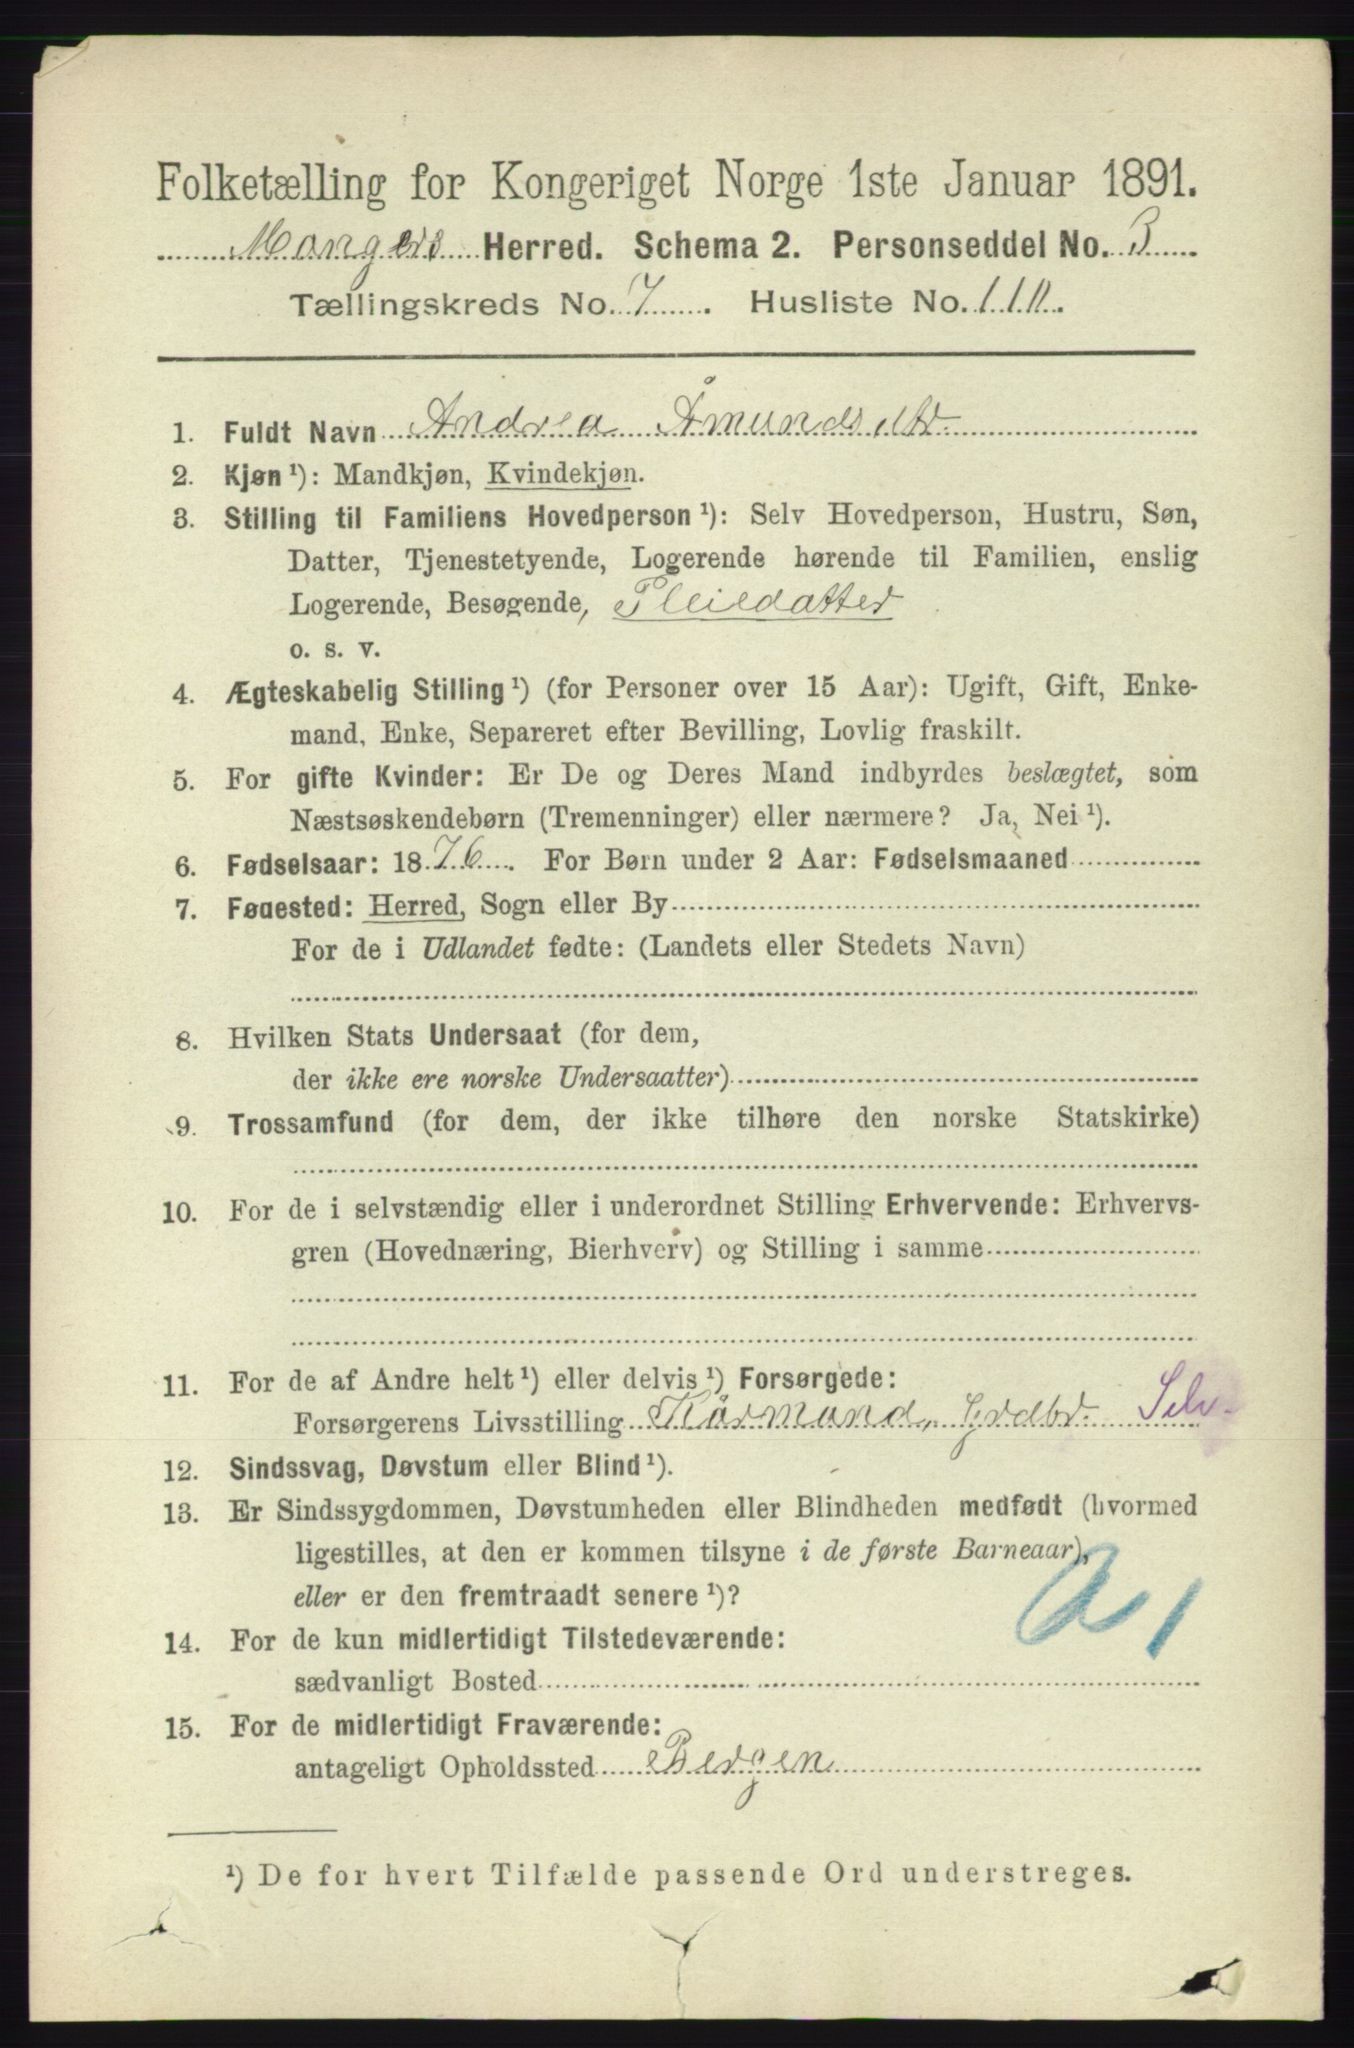 Folketælling for Kongeriget Norge 1ste Januar 1891.
Mangers Herred. Schema 2. Personseddel No. 3
Tællingskreds No. 7. Husliste No. 110.
1. Fuldt Navn Andrea Åmundsdtr
2. Kjøn¹): Mandkjøn, Kvindekjøn.
3. Stilling til Familiens Hovedperson¹): Selv Hovedperson, Hustru, Søn,
Datter, Tjenestetyende, Logerende hørende til Familien, enslig
Logerende, Besøgende, Pleiedatter
o. s. v.
4. Ægteskabelig Stilling¹) (for Personer over 15 Aar): Ugift, Gift, Enke-
mand, Enke, Separeret efter Bevilling, Lovlig fraskilt.
5. For gifte Kvinder: Er De og Deres Mand indbyrdes beslægtet, som
Næstsøskendebørn (Tremenninger) eller nærmere? Ja, Nei¹).
6. Fødselsaar: 1876. For Børn under 2 Aar: Fødselsmaaned
7. Fødested: Herred, Sogn eller By
For de i Udlandet fødte: (Landets eller Stedets Navn)
8. Hvilken Stats Undersaat (for dem,
der ikke ere norske Undersaatter)
9. Trossamfund (for dem, der ikke tilhøre den norske Statskirke)
10. For de i selvstændig eller i underordnet Stilling Erhvervende: Erhvervs-
gren (Hovednæring, Bierhverv) og Stilling i samme
11. For de af Andre helt¹) eller delvis¹) Forsørgede:
Forsørgerens Livsstilling Kårmand, Grdbr. Selv
12. Sindssvag, Døvstum eller Blind¹).
13. Er Sindssygdommen, Døvstumheden eller Blindheden medfødt (hvormed
ligestilles, at den er kommen tilsyne i de første Barneaar),
eller er den fremtraadt senere¹)?
14. For de kun midlertidigt Tilstedeværende:
sædvanligt Bosted
15. For de midlertidigt Fraværende:
antageligt Opholdssted Bergen
¹) De for hvert Tilfælde passende Ord understreges.